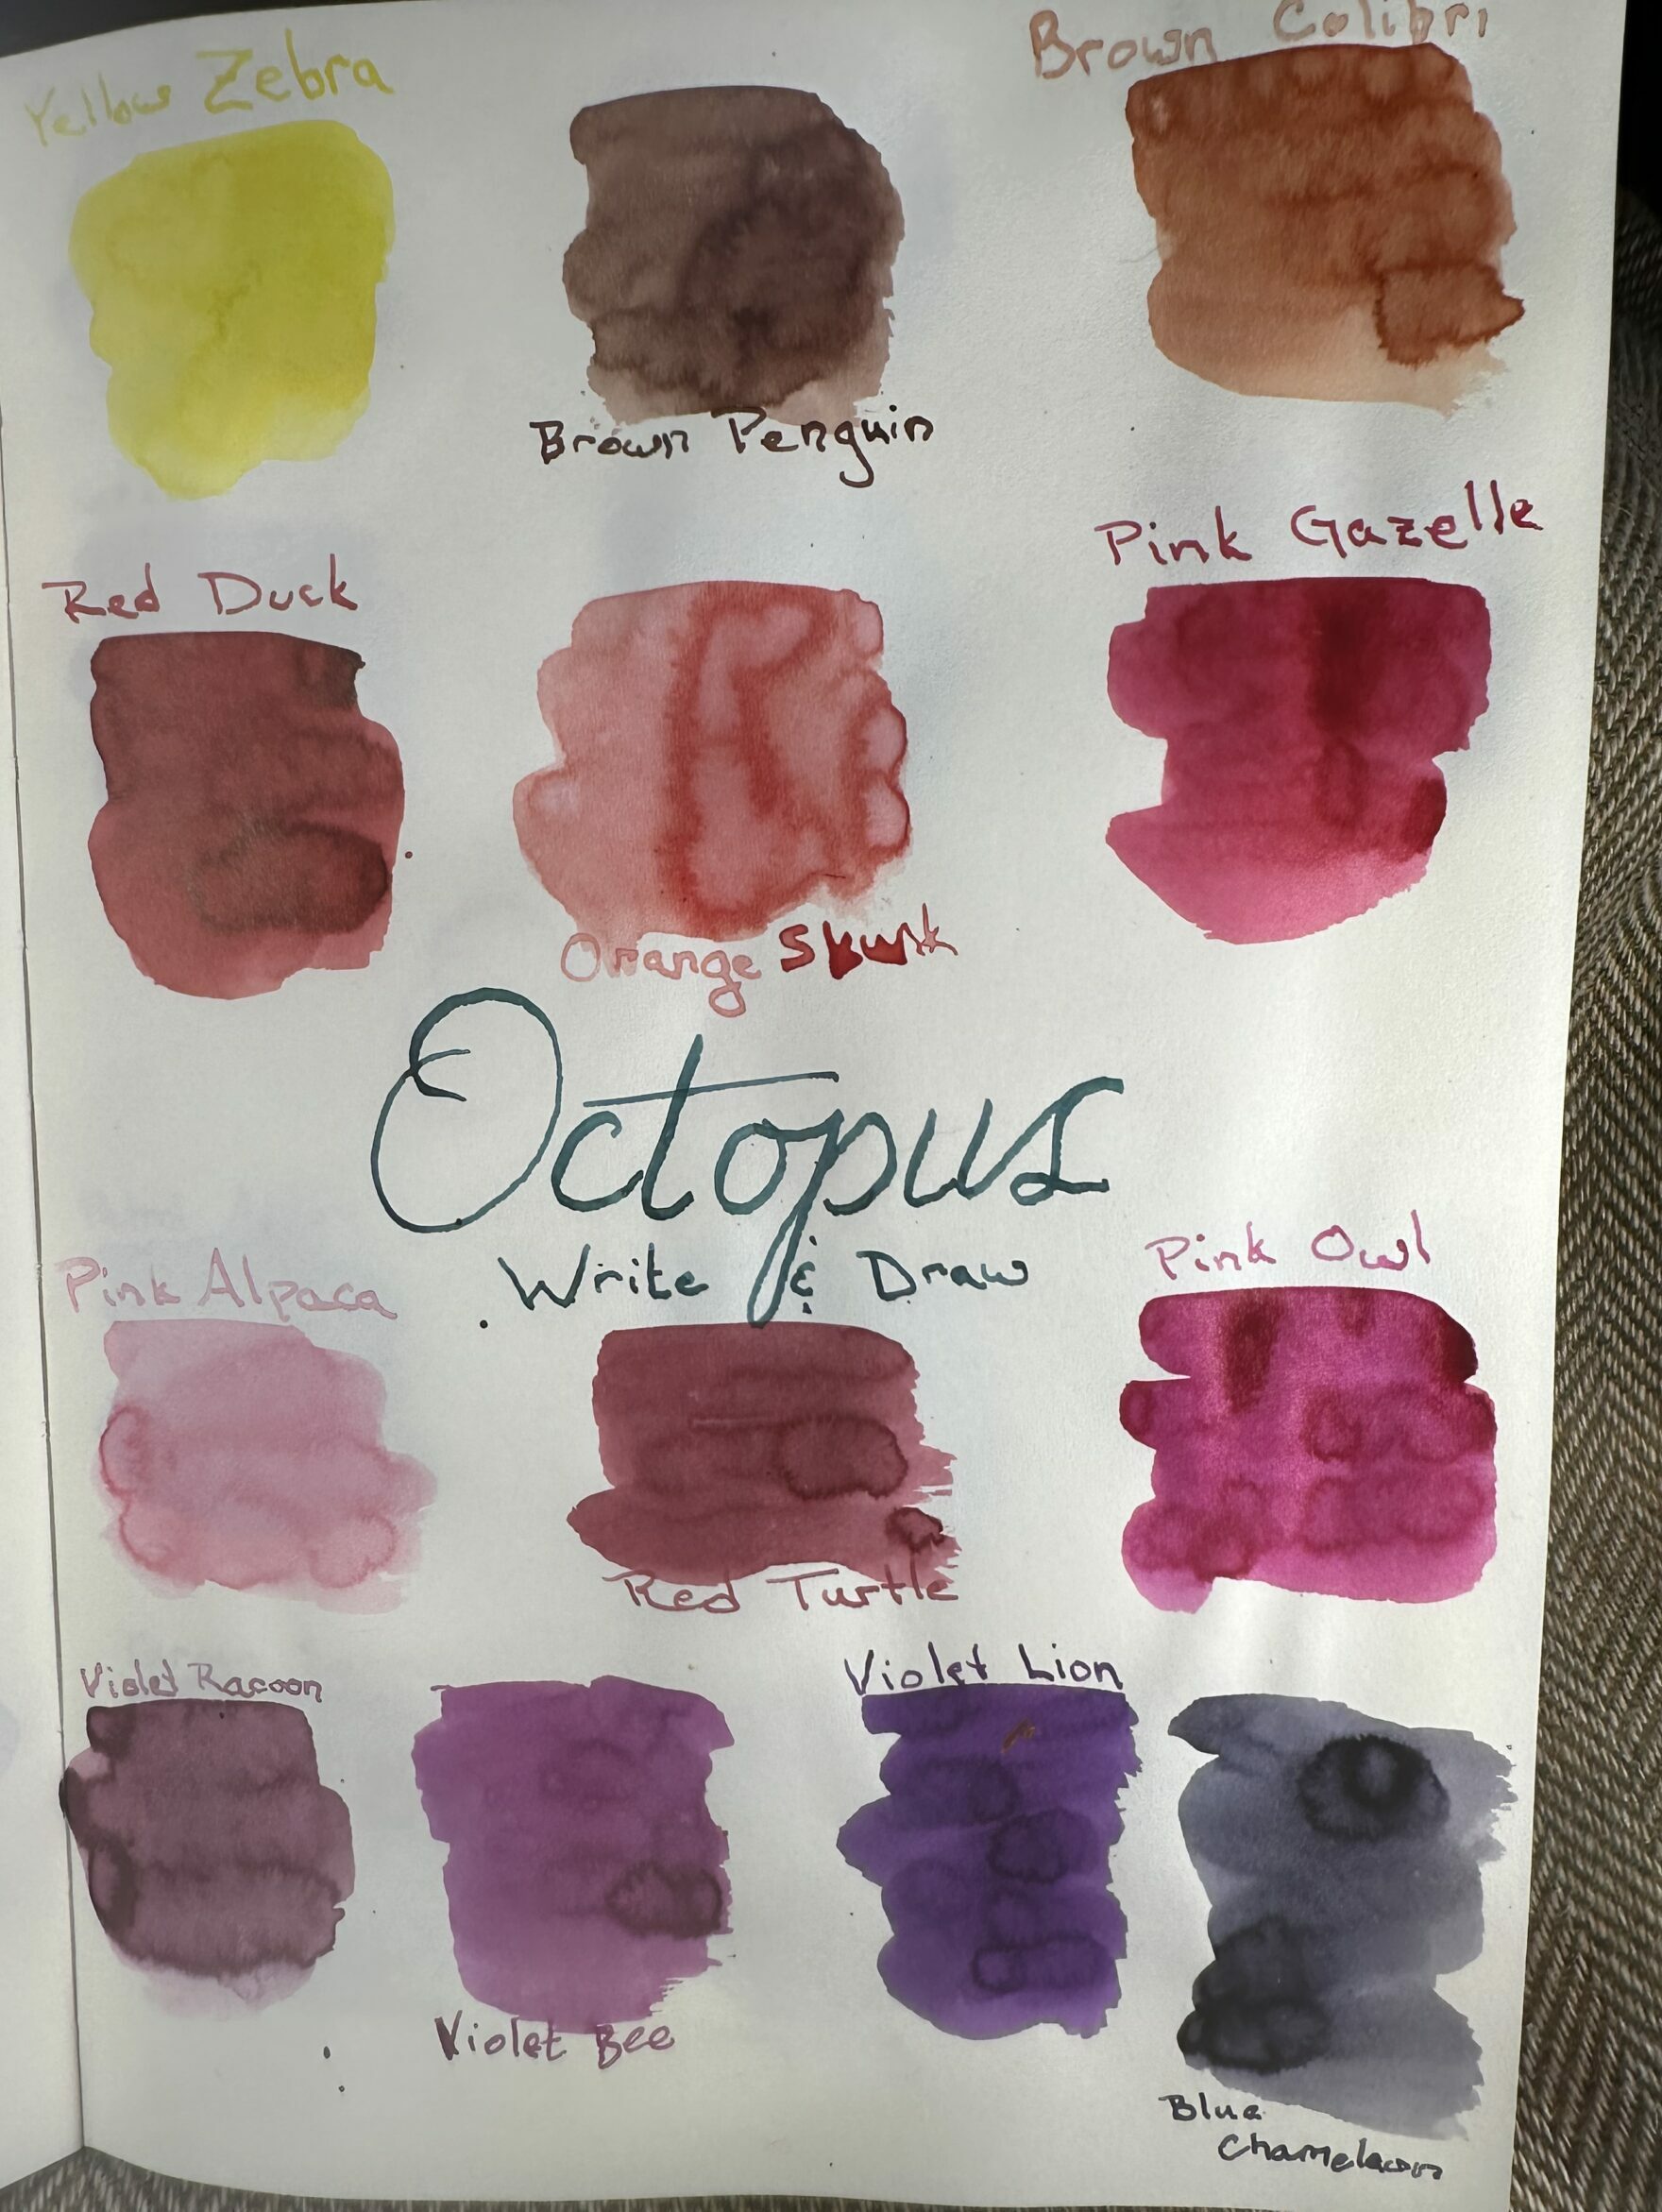 Yellow Zebra
Brown Penguin
Brown Colibri
Red Duck
Orange Skunk
Pink Gazelle
Octopus
Write & Draw
Pink Alpaca
Red Turtle
Pink Owl
Violet Racoon
Violet Bee
Violet Lion
Blue
Chameleon